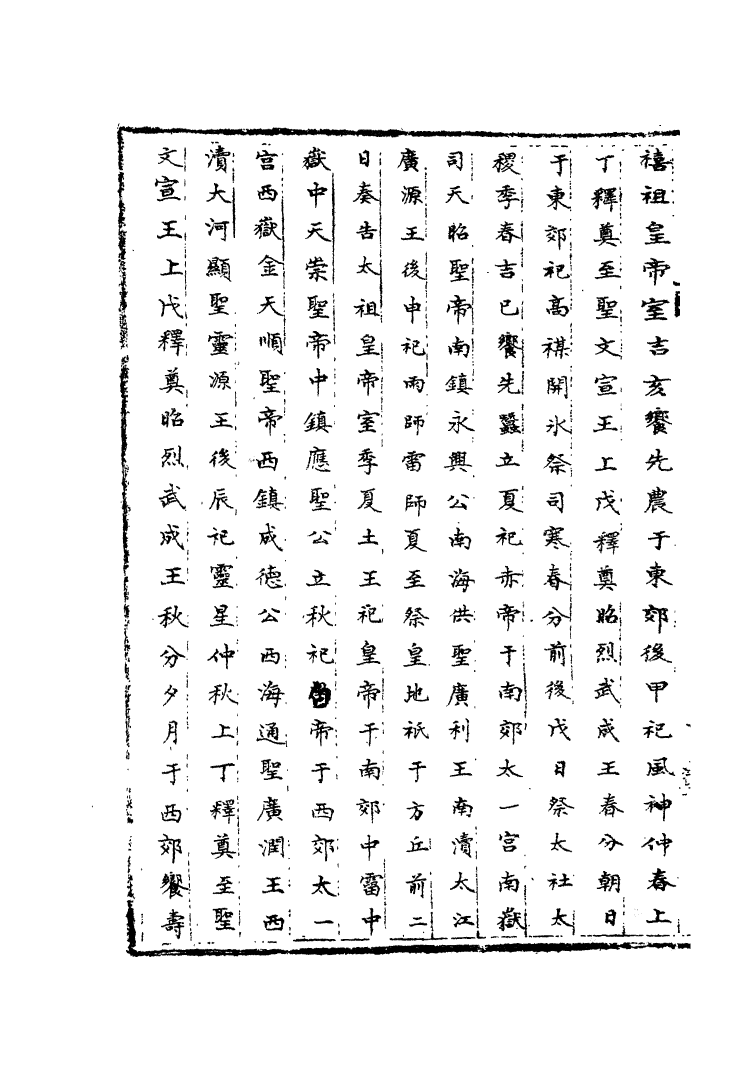 禧祖皇帝室吉亥饗先農于東郊後甲祀風神仲春上
丁釋奠至聖文宣王上戊釋奠昭烈武成王春分朝日
于東郊祀高禖開氷祭司寒春分前後戊日祭太社太
稷季春吉巳饗先蠶立夏祀赤帝于南郊太一宮南嶽
司天昭聖帝南鎮永興公南海供聖廣利王南瀆太江
廣源王後申祀雨師雷師夏至祭皇地祇于方丘前二
日奏告太祖皇帝室季夏土王祀皇帝于南郊中霤中
嶽中天崇聖帝中鎮應聖公立秋祀帝于西郊太一
宮西嶽金天順聖帝西鎮成德公西海通聖廣潤王西
瀆大河顯聖靈源王後辰祀靈星仲秋上丁釋奠至聖
文宣王上戊釋奠昭烈武成王秋分夕月于西郊饗壽